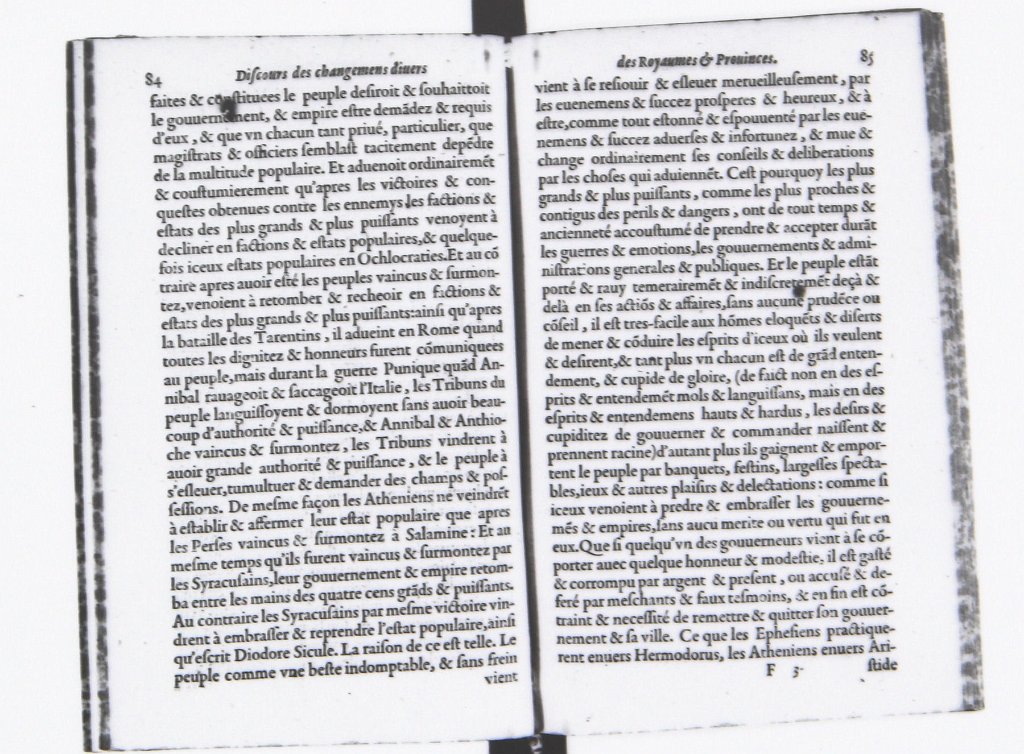 84
Diſcours des changemens diuers
faites & conſtituces le peuple deſiroit & ſouhaittoit
le gouuernement, & empire eſtre demādez & requis
d'eux, & que vn chacun tant priué, particulier, que
magiſtrats & officiers ſemblaſt tacitement depēdre
de la multitude populaire. Et aduenoit ordinairemēt
& couſtumierement qu'apres les victoires & con-
queſtes obtenues contre les ennemys les factions &
eſtats des plus grands & plus puiſſants venoyent à
decliner en factions & eſtats populaires,& quelque-
fois iceux eſtats populaires en Ochlocraties.Et au cō
traire apres auoir eſté les peuples vaincus & ſurmon-
tez,venoient à retomber & recheoir en factions &
eſtats des plus grands & plus puiſſants:ainſi qu'apres
la bataille des Tarentins, il adueint en Rome quand
toutes les dignitez & honneurs furent cōmuniquees
au peuple,mais durant la guerre Punique quād An-
nibal rauageoit & ſaccageoit l'Italie, les Tribuns du
peuple languiſſoyent & dormoyent ſans auoir beau-
coup d'authorité & puiſſance,& Annibal & Anthio-
che vaincus & ſurmontez, les Tribuns vindrent à
auoir grande authorité & puiſſance, & le peuple à
s'eſleuer,tumultuer & demander des champs & poſ-
ſeſſions. De meſme façon les Atheniens ne veindrēt
à eſtablir & affermer leur eſtat populaire que apres
les Perſes vaincus & ſurmontez à Salamine: Et au
meſme temps qu'ils furent vaincus & ſurmontez par
les Syracuſains,leur gouuernement & empire retom-
ba entre les mains des quatre cens grāds & puiſſants.
Au contraire les Syracuſains par meſme victoire vin-
drent à embraſſer & reprendre l'eſtat populaire,ainſi
qu'eſcrit Diodore Sicule. La raiſon de ce eſt telle. Le
peuple comme vne beſte indomptable, & ſans frein
vient
des Royaumes & Prouinces.
85
vient à ſe reſiouir & eſleuer merueilleuſement, par
les euenemens & ſuccez proſperes & heureux, & à
eſtre,comme tout eſtonné & eſpouuenté par les eue-
nemens & ſuccez aduerſes & infortunez, & mue &
change ordinairement ſes conſeils & deliberations
par les choſes qui aduiennēt. Ceſt pourquoy les plus
grands & plus puiſſants, comme les plus proches &
contigus des perils & dangers, ont de tout temps &
ancienneté accouſtumé de prendre & accepter durāt
les guerres & emotions,les gouuernements & admi-
niſtrations generales & publiques. Er le peuple eſtāt
porté & rauy temerairemēt & indiſcretemēt deçà &
delà en ſes actiōs & affaires,ſans aucune prudēce ou
cōſeil, il eſt tres-facile aux hōmes eloquēts & diſerts
de mener & cōduire les eſprits d'iceux où ils veulent
& deſirent,& tant plus vn chacun eſt de grād enten-
dement, & cupide de gloire, (de faict non en des eſ-
prits & entendemēt mols & languiſſans, mais en des
eſprits & entendemens hauts & hardus, les deſirs &
cupiditez de gouuerner & commander naiſſent &
prennent racine)d'autant plus ils gaignent & empor-
tent le peuple par banquets, feſtins, largeſſes ſpecta-
bles,ieux & autres plaiſirs & delectations: comme ſi
iceux venoient à prēdre & embraſſer les gouuerne-
mēs & empires,ſans aucū merite ou vertu qui fut en
eux.Que ſi quelqu'vn des gouuerneurs vient à ſe cō-
porter auec quelque honneur & modeſtie, il eſt gaſté
& corrompu par argent & preſent, ou accuſé & de-
feré par meſchants & faux teſmoins, & en fin eſt cō-
traint & neceſſité de remettre & quitter ſon gouuer-
nement & ſa ville. Ce que les Epheſiens practique-
rent enuers Hermodorus, les Atheniens enuers Ari-
F 5. ſtide